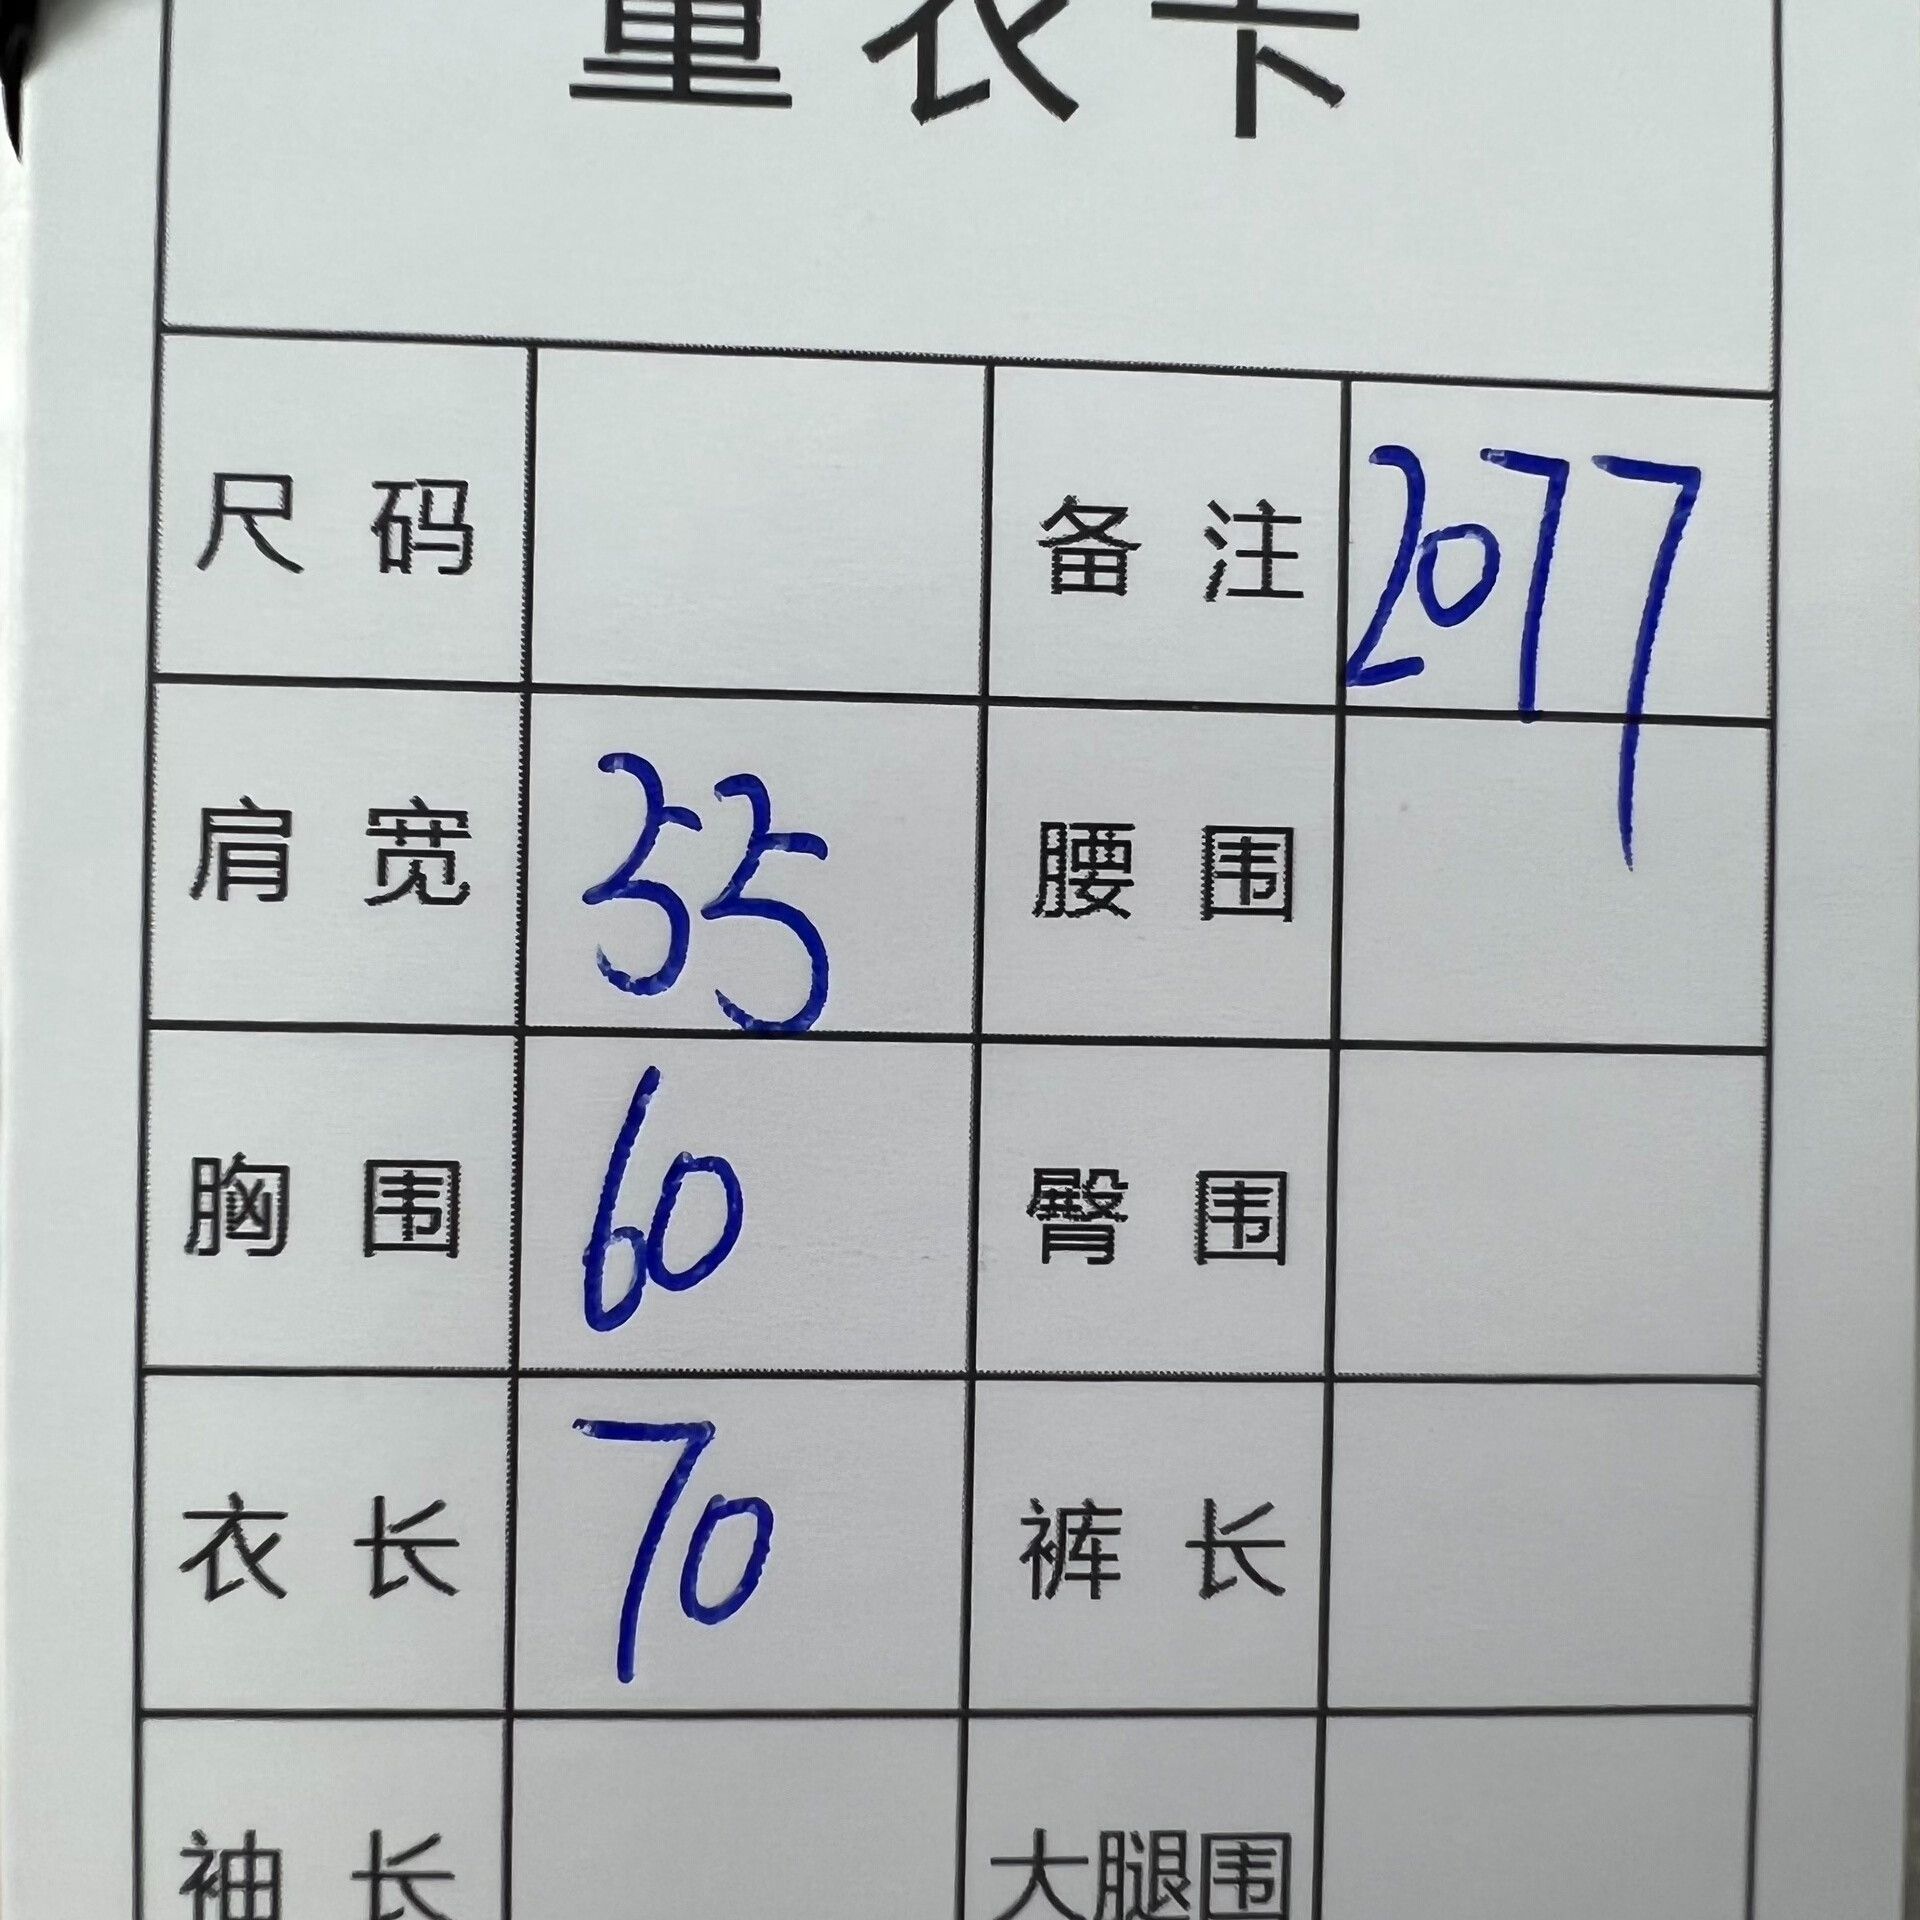 量衣卡
尺码 备注 2077
肩宽 55 腰围
胸围 60 臀围
衣长 70 裤长
袖长 大腿围